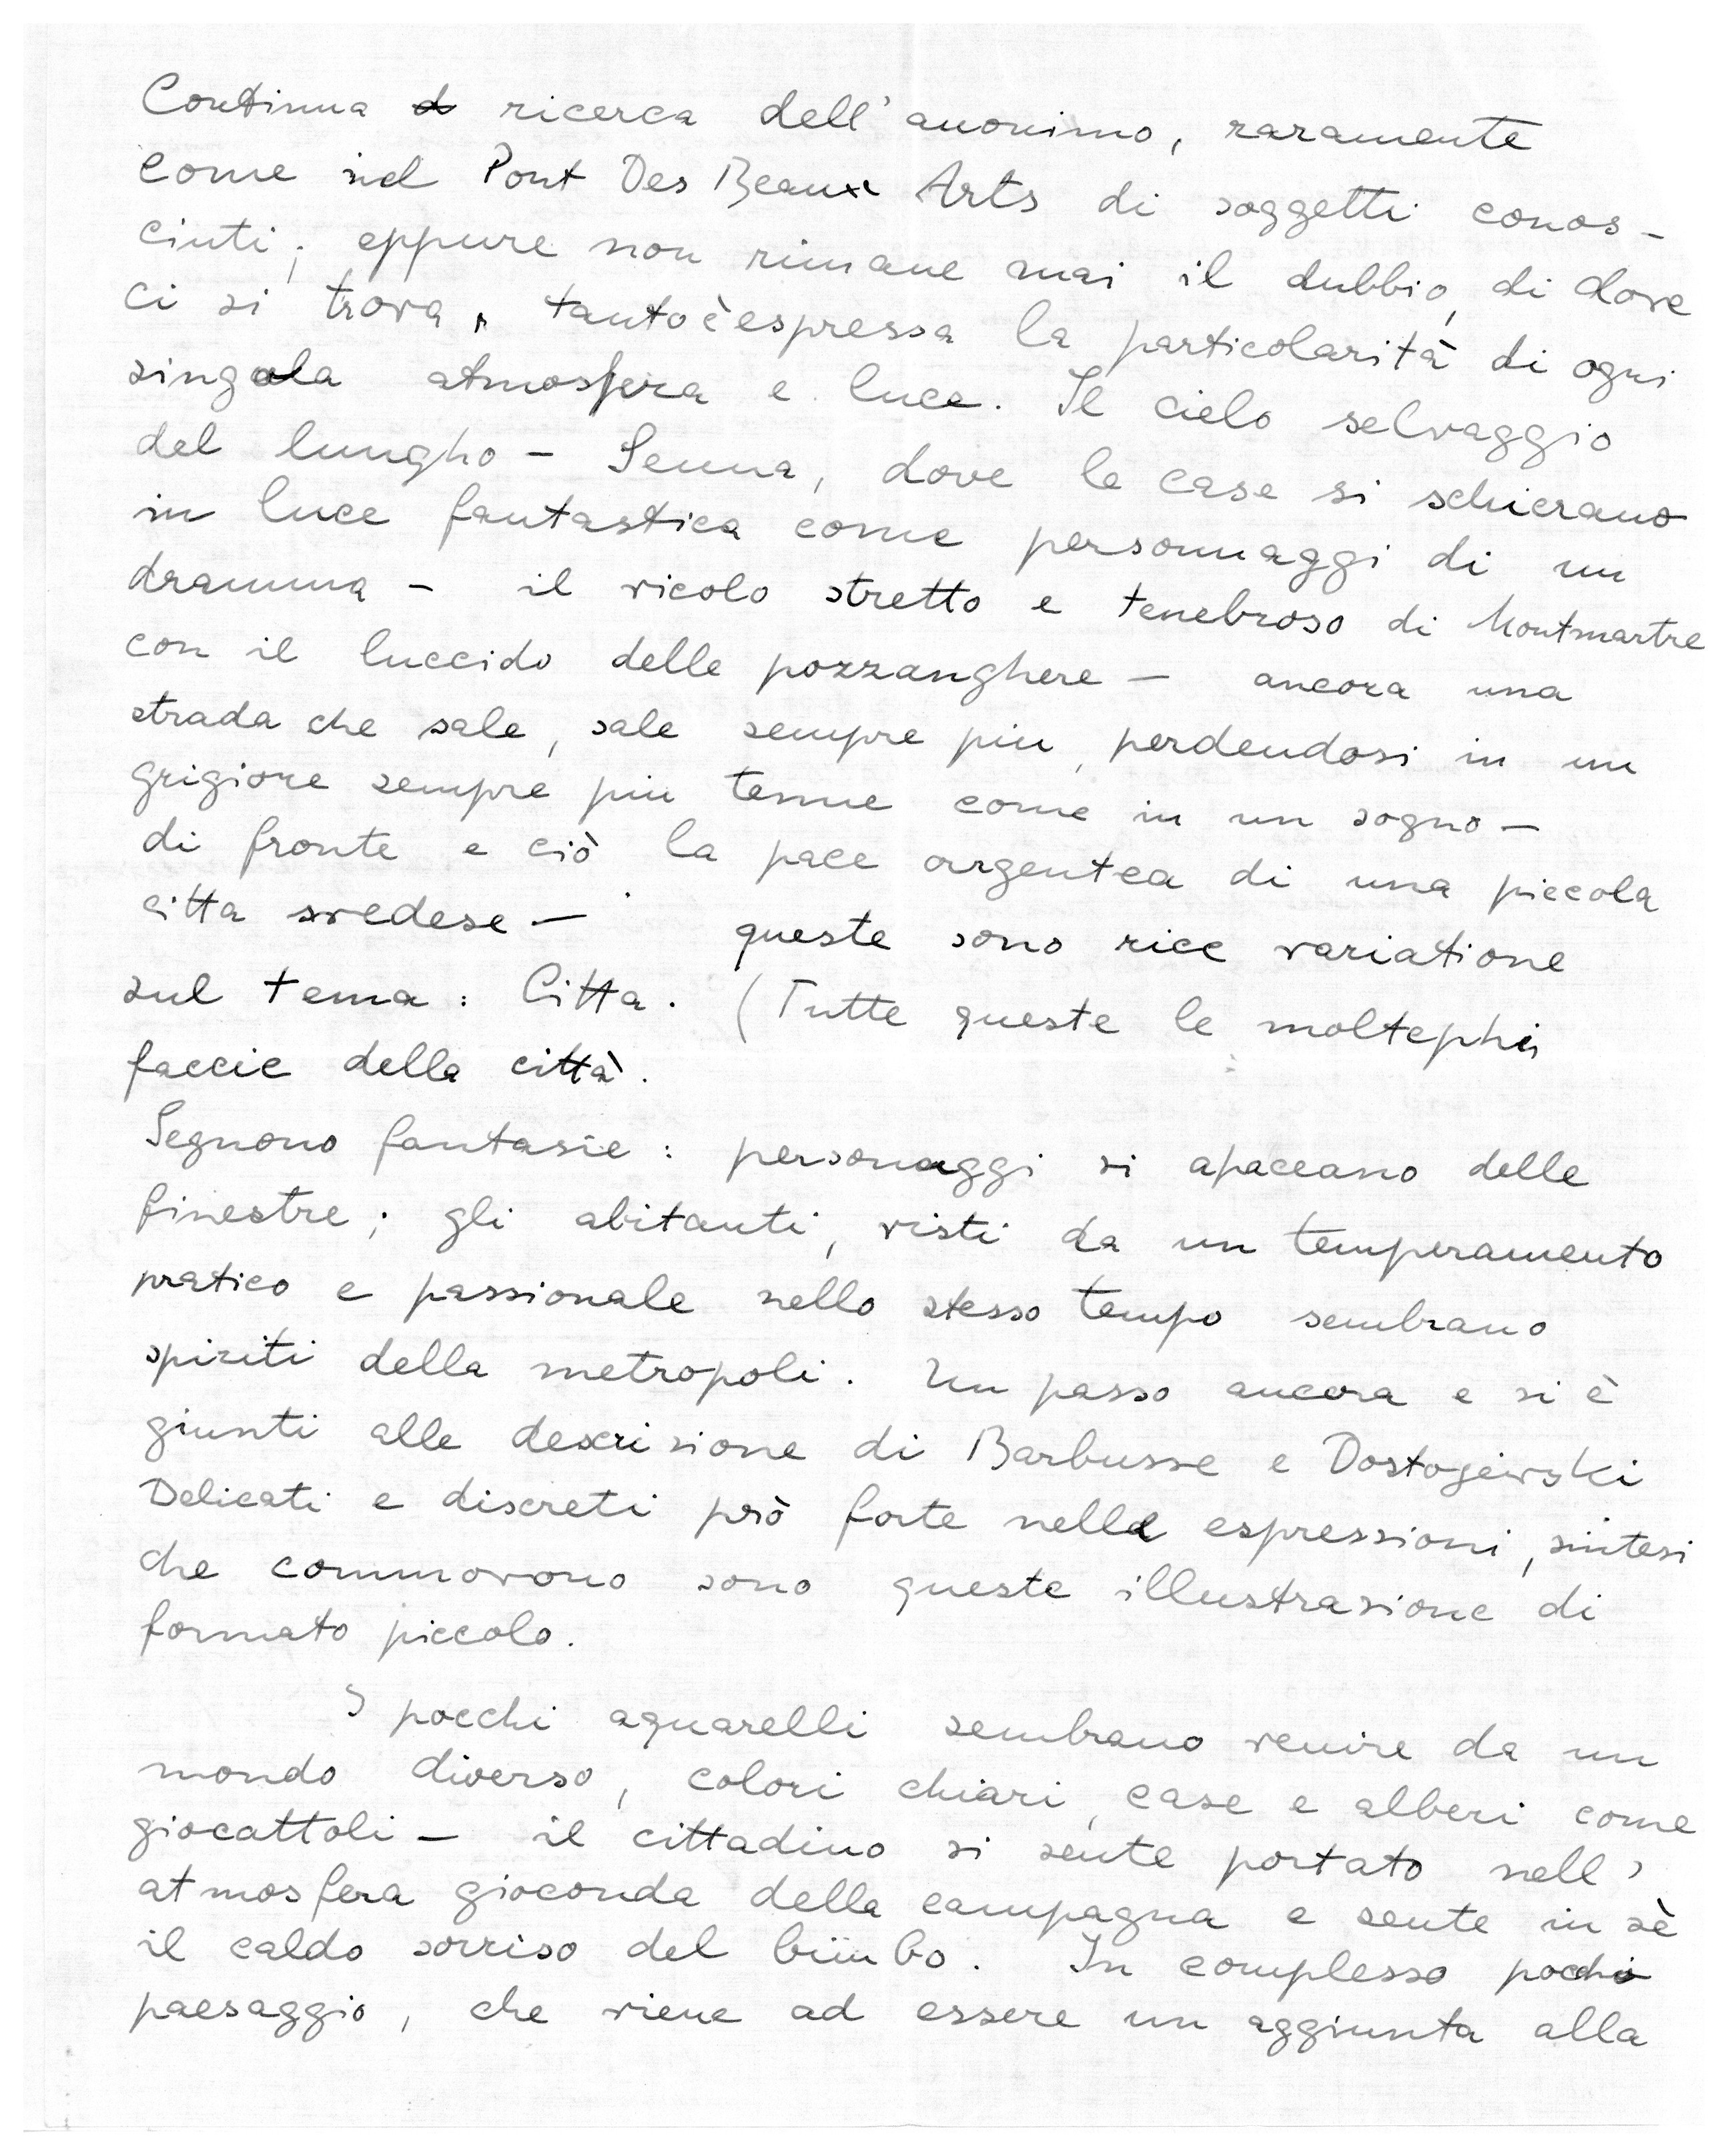 Continua d ricerca dell'anonimo, raramente
come nel Pont Des Beaux Arts di soggetti conos-
ciuti; eppure non rimane mai il dubbio, di dove
ci si trova, tanto è espressa la particolarità di ogni
singola atmosfera e luce. Il cielo selvaggio
del lungho - Senna, dove le case si schierano
in luce fantastica come personnaggi di un
dramma - il vicolo stretto e tenebroso di Montmartre
con il luccido delle pozzanghere - ancora una
strada che sale, sale sempre piu, perdendosi in un
grigiore sempre piu tenue come in un sogno -
di fronte e ciò la pace argentea di una piccola
citta svedese - queste sono ricc variatione
sul tema: Citta. (Tutte queste le
faccie della città.
Segnono fantasie: personaggi si apaceano delle
finestre; gli abitanti, visti da un temperamento
pratico e passionale nello stesso tempo sembrano
spiriti della metropoli. Un passo ancora e si è
giunti alle descrizione di Barbusse e Dostojewski
Delicati e discreti però forte nelle espressioni, sintesi
che commovono sono queste illustrazione di
formato piccolo.
I pocchi aquarelli sembrano venire da un
mondo diverso, colori chiari, case e alberi come
giocattoli - il cittadino si sente portato nell'
atmosfera gioconda della campagna e sente in sè
il caldo sorriso del bimbo. In complesso pocchi
paesaggio, che viene ad essere un aggiunta alla